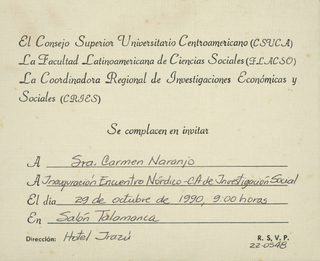 El Consejo Superior Universitario Centroamericano (CSUCA)
La Facultad Latinoamericana de Ciencias Sociales (FLACSO)
La Coordinadora Regional de Investigaciones Económicas y
Sociales (CRIES)
Se complacen en invitar
A Sra. Carmen Naranjo
A Inauguración Encuentro Nórdico-CA de Investigación Social
El día 29 de octubre de 1990, 9:00 horas
En Salón Talamanca
Dirección: Hotel Irazú R. S. V. P.
22-0548